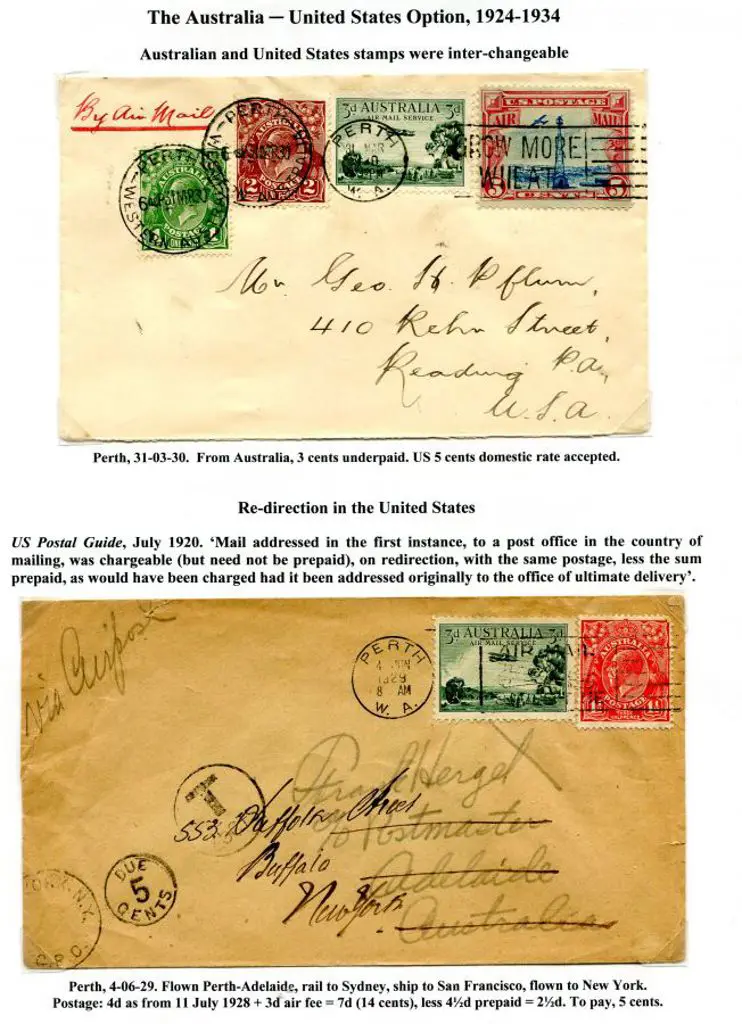 The Australia — United States Option, 1924-1934
Australian and United States stamps were inter-changeable
By Air Mail
PERTH
WESTERN AUSTRALIA
31MR30
AUSTRALIA
POSTAGE
2 2
3d AUSTRALIA 3d
AIR MAIL SERVICE
PERTH
31 MAR
W. A.
U.S. POSTAGE
AIR MAIL
5 5
CENTS
GROW MORE
WHEAT
PERTH
WESTERN AUSTRALIA
31MR30
AUSTRALIA
POSTAGE
Mr. Geo. H. Pflum,
410 Rehr Street,
Reading Pa,
U.S.A.
Perth, 31-03-30. From Australia, 3 cents underpaid. US 5 cents domestic rate accepted.
Re-direction in the United States
US Postal Guide, July 1920. ‘Mail addressed in the first instance, to a post office in the country of
mailing, was chargeable (but need not be prepaid), on redirection, with the same postage, less the sum
prepaid, as would have been charged had it been addressed originally to the office of ultimate delivery’.
via Airpost
PERTH
4 JUN
1929
8 AM
W. A.
3d AUSTRALIA 3d
AIR MAIL SERVICE
AIR MAIL
AUSTRALIA
POSTAGE
HALFPENCE
Frank Hergel
c/o Postmaster
Adelaide
Australia
T
553 Suffolk Street
Buffalo
New York
DUE
5
CENTS
YORK, N.Y.
G.P.O.
Perth, 4-06-29. Flown Perth-Adelaide, rail to Sydney, ship to San Francisco, flown to New York.
Postage: 4d as from 11 July 1928 + 3d air fee = 7d (14 cents), less 4½d prepaid = 2½d. To pay, 5 cents.